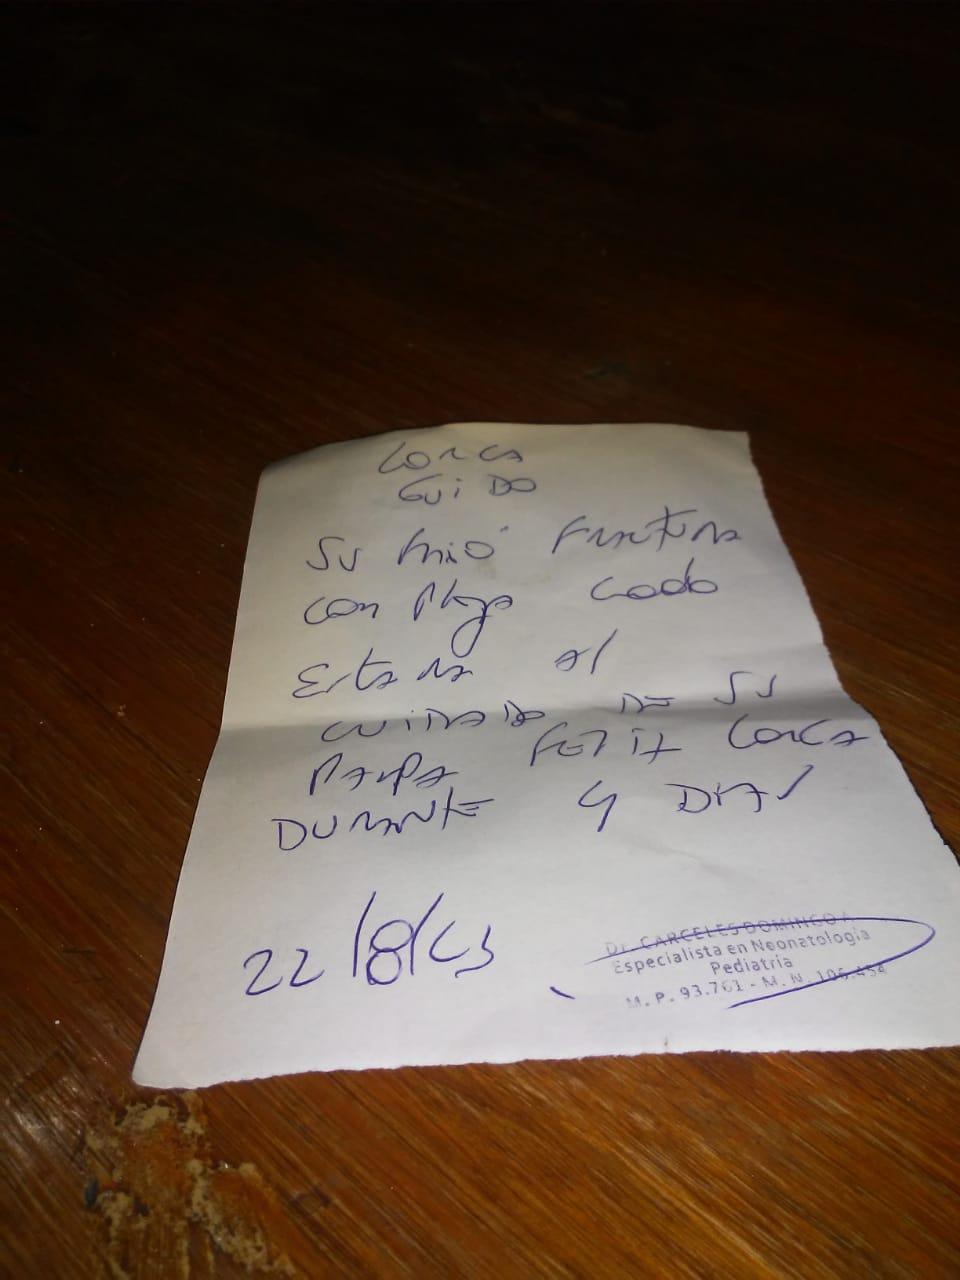 Lorca
Guido
Sufrió Fractura
con Playo codo
Estara al
cuidado DE SU
PAPA FELIX Lorca
DURANTE 4 DIAS
22/8/23
Dr. CARCELES DOMINGO A.
Especialista en Neonatología
Pediatría
M.P. 93.761 - M.N. 106.454